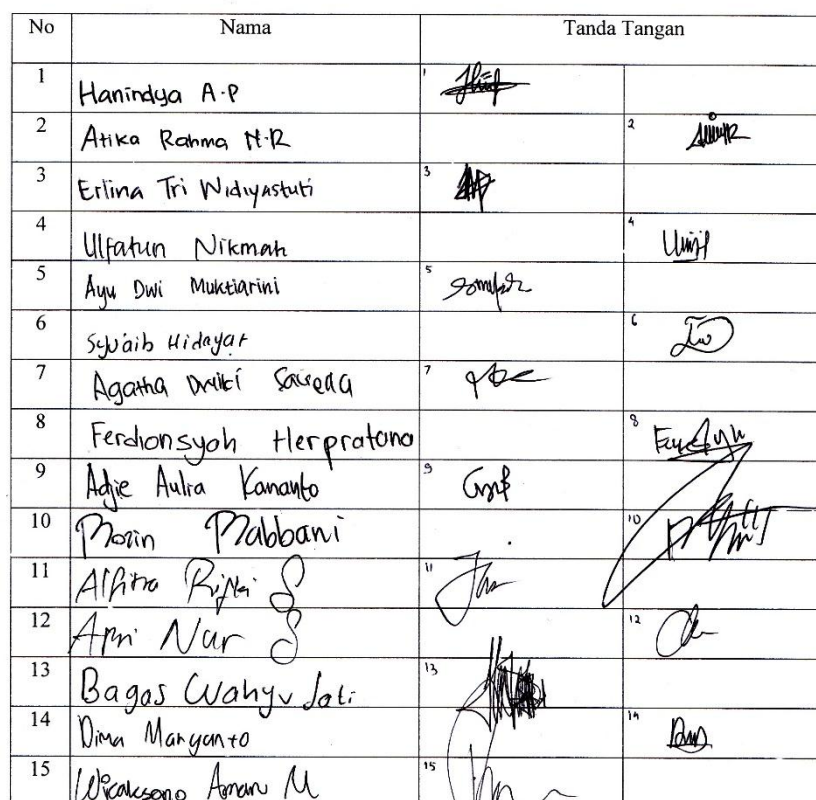 No Nama Tanda Tangan
1 Hanindya A.P 1
2 Atika Rahma N.R 2
3 Erlina Tri Widiyastuti 3
4 Ulfatun Nikmah 4
5 Ayu Dwi Muktiarini 5
6 Syu'aib Hidayat 6
7 Agatha 7
8 Ferdionsyah Herpratana 8
9 Adjie Aulia Kananto 9
10 Mabbani 10
11 Alfitra Rifki S 11
12 Apri Nur S 12
13 Bagas Wahyu Jati 13
14 Dima Maryanto 14
15 Wicaksono Aman M 15